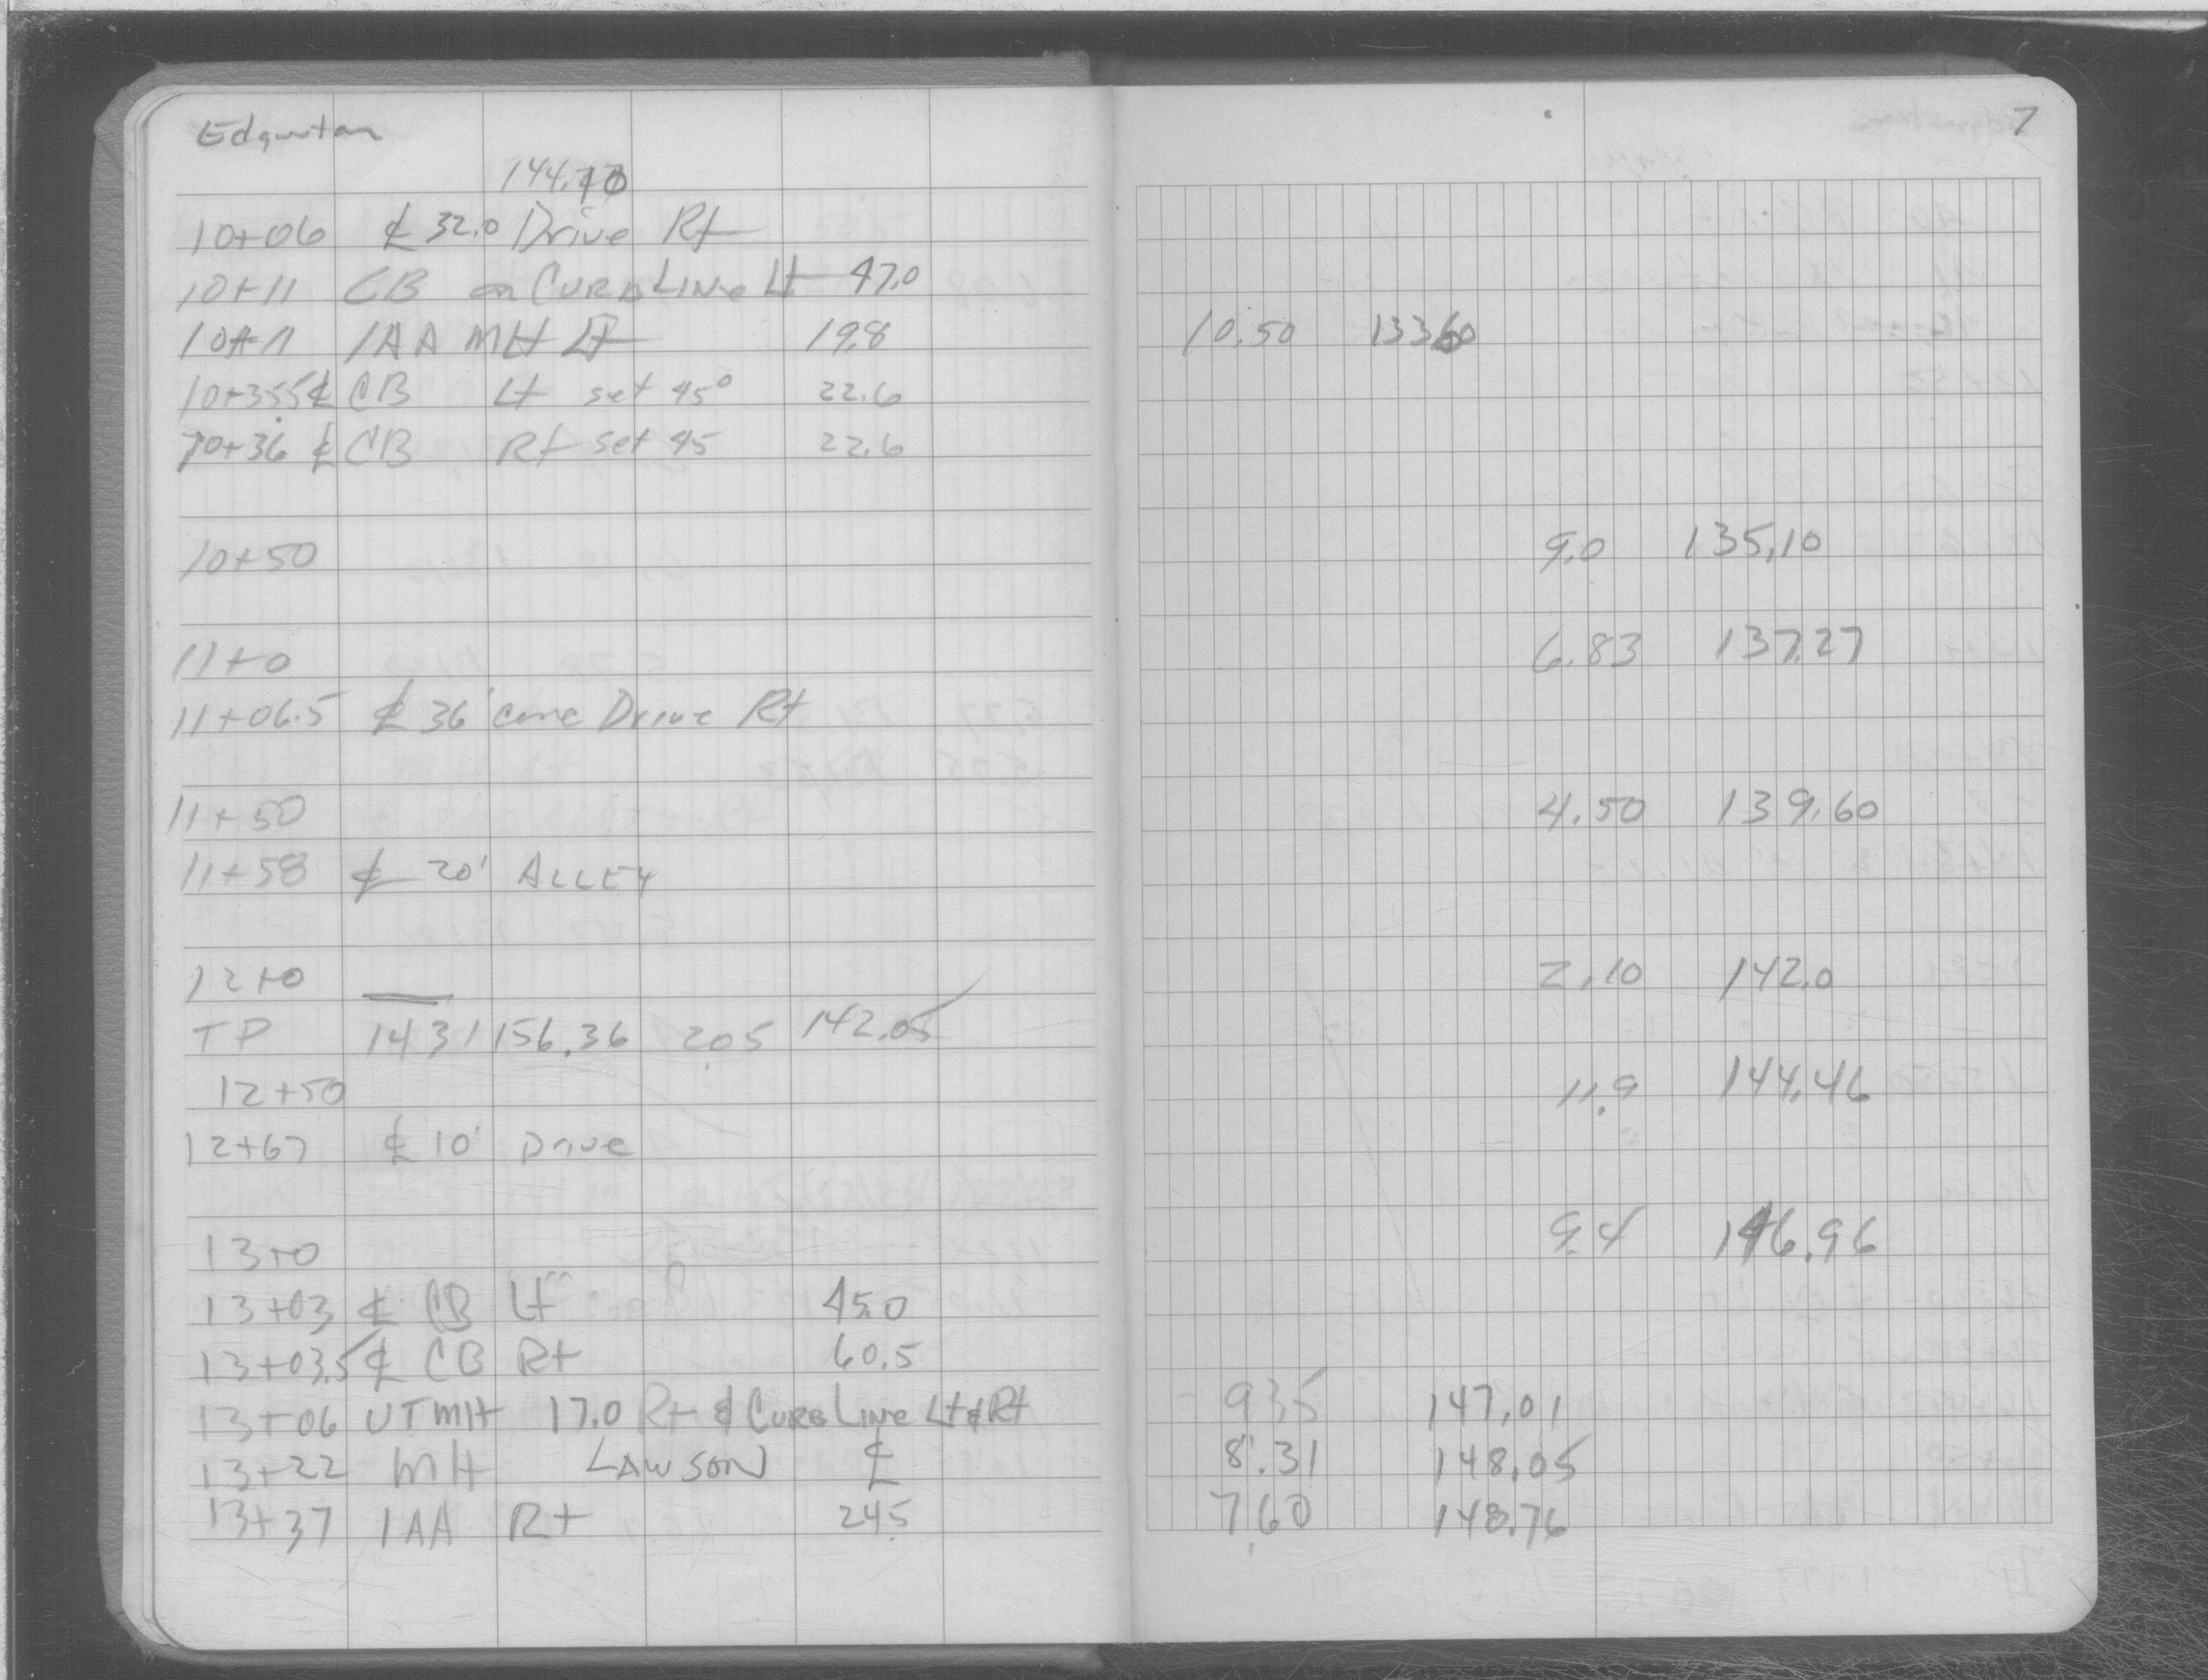 Edgerton 7
144.10
10+06 ℄ 32.0 Drive Rt
10+11 CB on CURB LINE Lt 47.0
10+11 1AA MH Lt 19.8 10.50 133.60
10+35.5 ℄ CB Lt set 45° 22.6
10+36 ℄ CB Rt set 45 22.6
10+50 9.0 135.10
11+0 6.83 137.27
11+06.5 ℄ 36' conc Drive Rt
11+50 4.50 139.60
11+58 ℄ 20' ALLEY
12+0 2.10 142.0
TP 14.31 156.36 2.05 142.05
12+50 11.9 144.46
12+67 ℄ 10' Drive
13+0 9.4 146.96
13+03 ℄ CB Lt 45.0
13+03.5 ℄ CB Rt 60.5
13+06 UTMH 17.0 Rt & CURB LINE Lt & Rt 9.35 147.01
13+22 MH LAWSON ℄ 8.31 148.05
13+37 1AA Rt 24.5 7.60 148.76